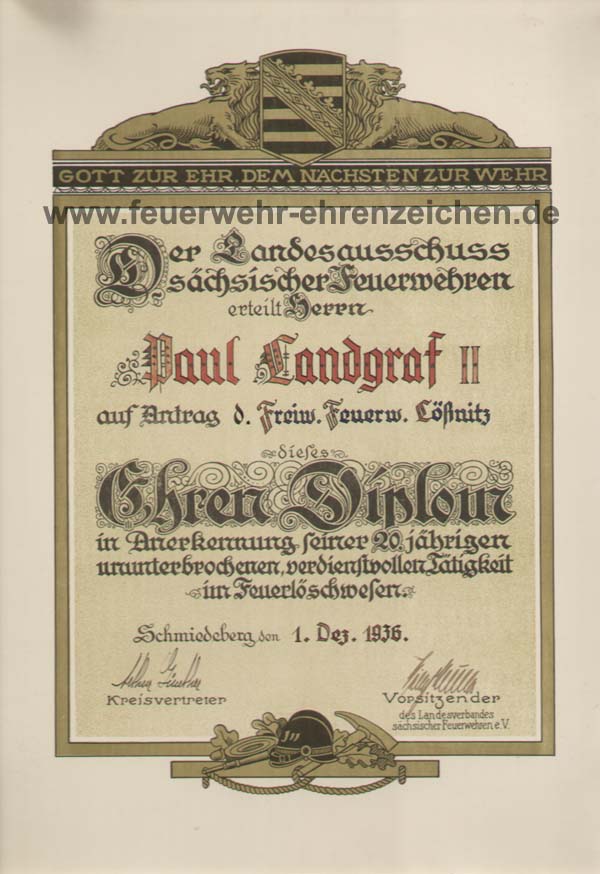 GOTT ZUR EHR, DEM NÄCHSTEN ZUR WEHR
www.feuerwehr-ehrenzeichen.de
Der Landesausschuss
sächsischer Feuerwehren
erteilt Herrn
Paul Landgraf II
auf Antrag d. Freiw. Feuerw. Lößnitz
dieses
Ehren Diplom
in Anerkennung seiner 20 jährigen
ununterbrochenen, verdienstvollen Tätigkeit
im Feuerlöschwesen.
Schmiedeberg, den 1. Dez. 1936.
Kreisvertreter
Vorsitzender
des Landesverbandes
sächsischer Feuerwehren e.V.